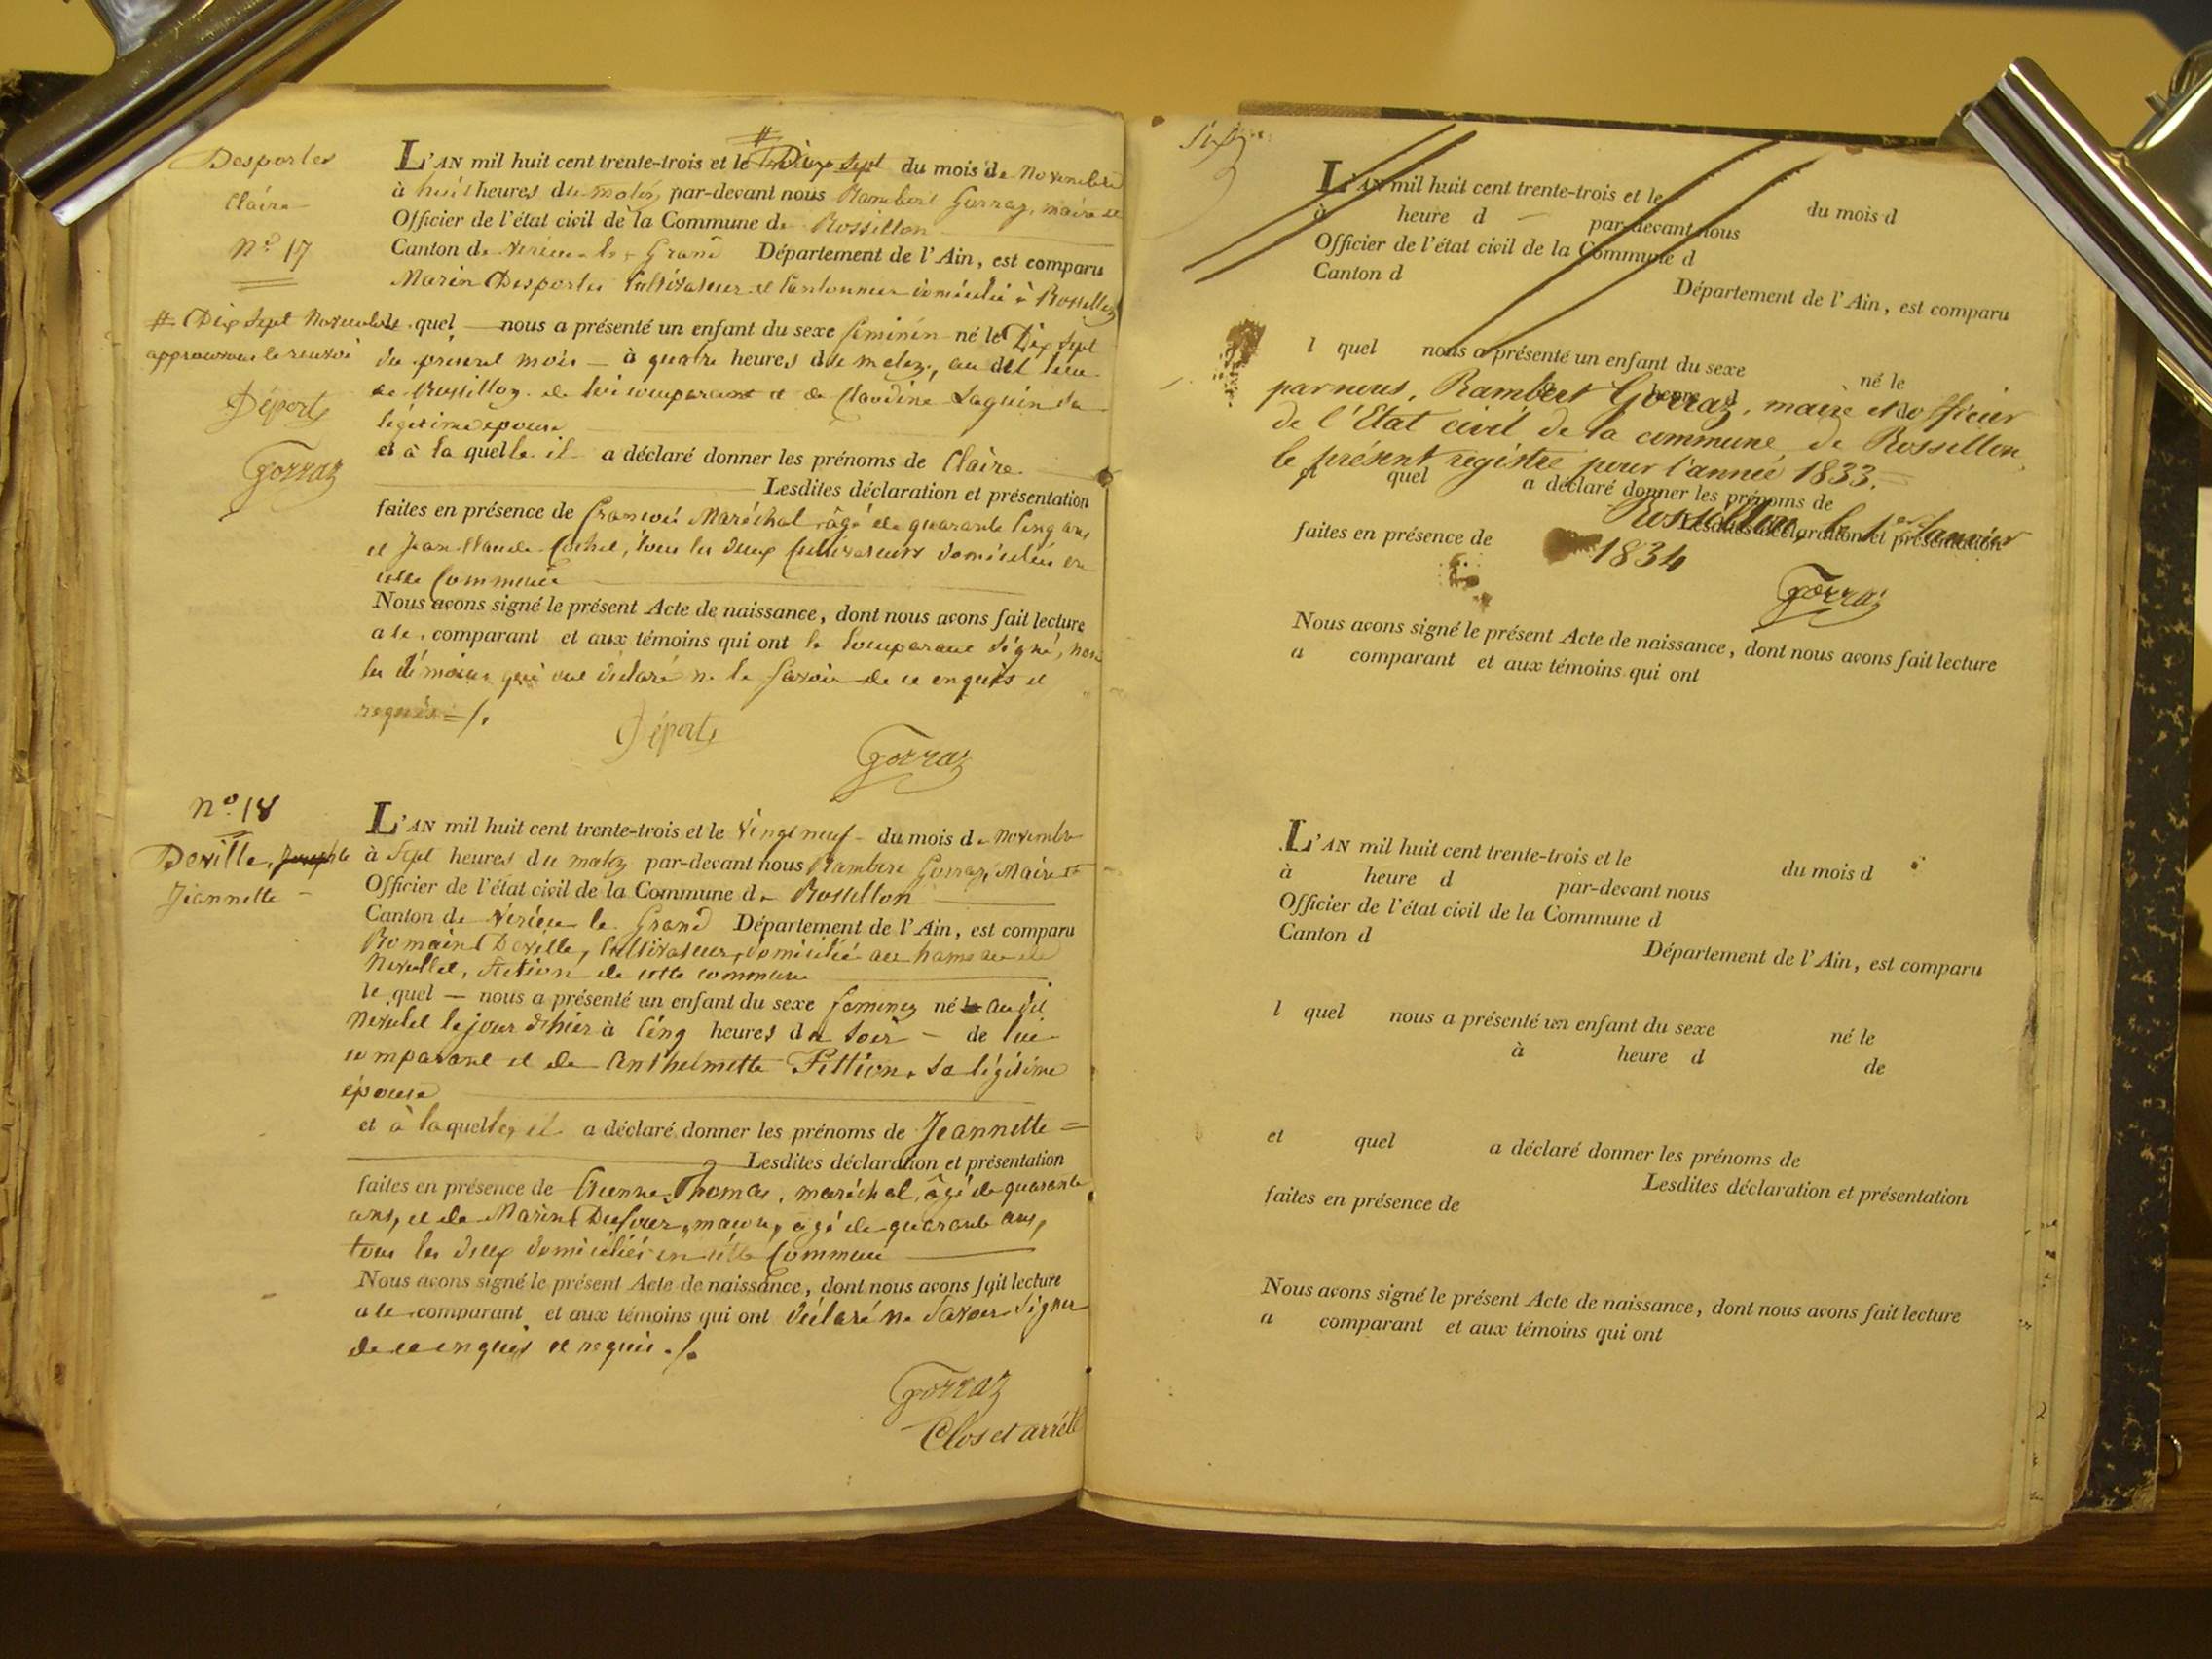 Desportes
Claire
N.º 17
# Dix Sept Novembre
approuvons le renvoi
Déporte
Gorraz
#
L'AN mil huit cent trente-trois et le Dix Sept du mois de Novembre
à huit heures du matin par-devant nous Rambert Gorraz, maire et
Officier de l'état civil de la Commune de Rossillon
Canton de Virieu-le-Grand Département de l'Ain, est comparu
Marin Desportes Cultivateur et Cantonnier domicilié à Rossillon
le quel nous a présenté un enfant du sexe féminin né le Dix Sept
du présent mois à quatre heures du matin, au dit lieu
de Rossillon de lui comparant et de Claudine Laguin sa
légitime épouse
et à la quelle il a déclaré donner les prénoms de Claire
Lesdites déclaration et présentation
faites en présence de François Maréchal âgé de quarante cinq ans
et Jean Claude Cochet, tous les deux Cultivateurs domiciliés en
cette Commune
Nous avons signé le présent Acte de naissance, dont nous avons fait lecture
a le comparant et aux témoins qui ont le Comparant signé, non
les témoins qui ont déclaré ne le savoir de ce enquis et
requis = /.
Déporte
Gorraz
n.º 18
Deville, Josephte
Jeannette
L'AN mil huit cent trente-trois et le vingt neuf du mois de Novembre
à Sept heures du matin par-devant nous Rambert Gorraz, Maire et
Officier de l'état civil de la Commune de Rossillon
Canton de Virieu le Grand Département de l'Ain, est comparu
Romain Deville, Cultivateur, domicilié au hameau de
section de cette commune
le quel nous a présenté un enfant du sexe feminin né le au dit
le jour d'hier à Cinq heures du Soir de lui
comparant et de Anthelmette Fittion, sa légitime
épouse
et à laquelle, il a déclaré donner les prénoms de Jeannette =
Lesdites déclaration et présentation
faites en présence de Etienne Thomas, maréchal, âgé de quarante
ans, et de Marin Dufour, maçon, âgé de quarante ans,
tous les deux domiciliés en cette Commune
Nous avons signé le présent Acte de naissance, dont nous avons fait lecture
a le comparant et aux témoins qui ont déclaré ne savoir signer
de ce enquis et requis. /.
Gorraz
Clos et arrêté
L'AN mil huit cent trente-trois et le du mois d
à heure d par-devant nous
Officier de l'état civil de la Commune d
Canton d Département de l'Ain, est comparu
l quel nous a présenté un enfant du sexe né le
à heure d de
par nous, Rambert Gorraz, maire et officier
de l'Etat civil de la commune de Rossillon
le présent registre pour l'année 1833.
et quel a déclaré donner les prénoms de
Lesdites déclaration et présentation
Rossillon, le 1er Janvier
faites en présence de
1834
Gorraz
Nous avons signé le présent Acte de naissance, dont nous avons fait lecture
a comparant et aux témoins qui ont
L'AN mil huit cent trente-trois et le du mois d
à heure d par-devant nous
Officier de l'état civil de la Commune d
Canton d Département de l'Ain, est comparu
l quel nous a présenté un enfant du sexe né le
à heure d de
et quel a déclaré donner les prénoms de
Lesdites déclaration et présentation
faites en présence de
Nous avons signé le présent Acte de naissance, dont nous avons fait lecture
a comparant et aux témoins qui ont